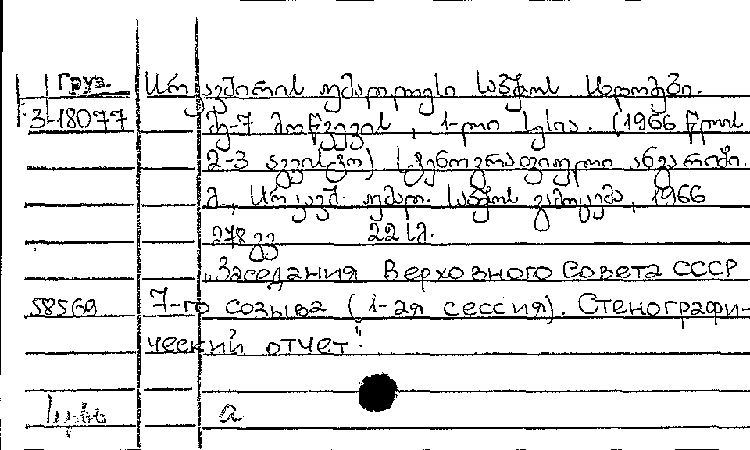 Груз. სსრ კავშირის უმაღლესი საბჭოს სხდომები.
3-18077 მე-7 მოწვევის, 1-ლი სესია. (1966 წლის
2-3 აგვისტო) სტენოგრაფიული ანგარიში.
მ., სსრ კავშ. უმაღ. საბჭოს გამოცემა, 1966
278 გვ. 22 სმ.
„Заседания Верховного Совета СССР
58569 7-го созыва (1-ая сессия). Стенографи-
ческий отчет".
а